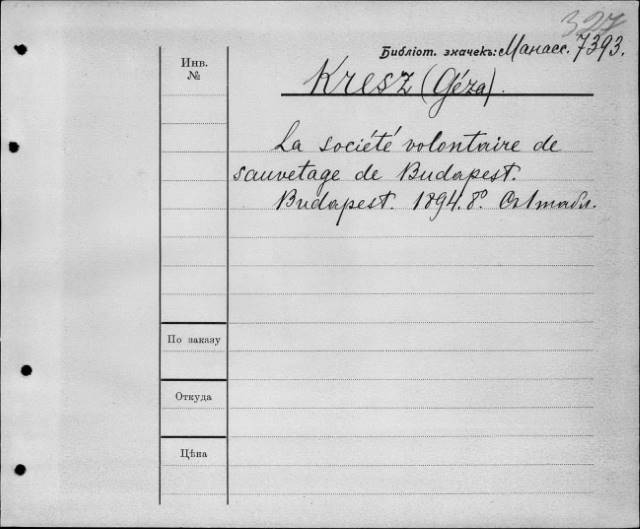 327
Библіот. значекъ: Манасс. 7393.
Инв.
№
Kresz (Géza).
La société volontaire de
sauvetage de Budapest.
Budapest. 1894. 8º. Съ 1 табл.
По заказу
Откуда
Цѣна